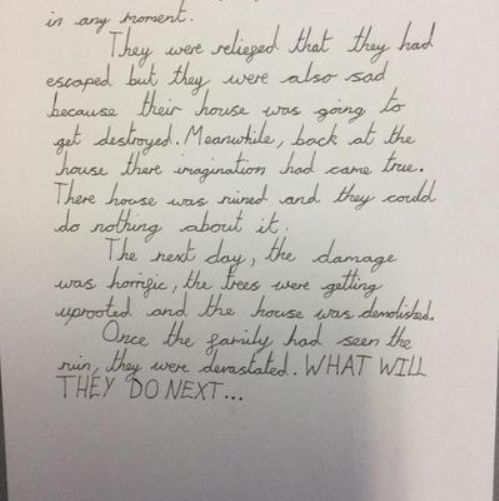 in any moment.
They were relieged that they had
escaped but they were also sad
because their house was going to
get destroyed. Meanwhile, back at the
house there imagination had came true.
There house was ruined and they could
do nothing about it.
The next day, the damage
was horrific, the trees were getting
uprooted and the house was demolished.
Once the family had seen the
ruin, they were devastated. WHAT WILL
THEY DO NEXT...